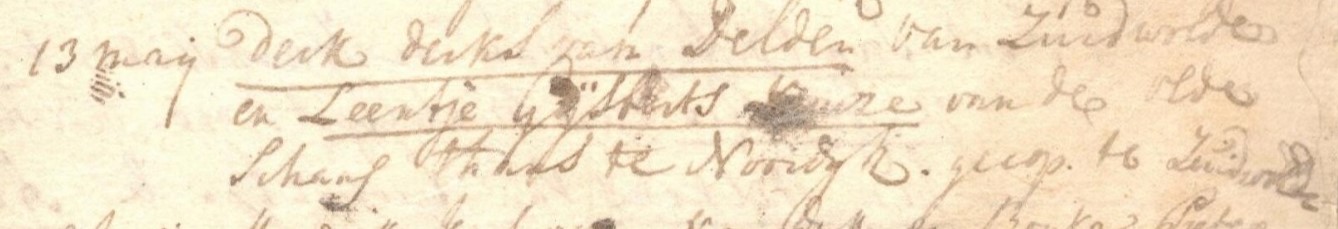 13 maij derk derks van Delden van Zuidwolde
en Leentje Gijsberts van de olde
Schans thans te Noordyk. gecop. te Zuidwolde